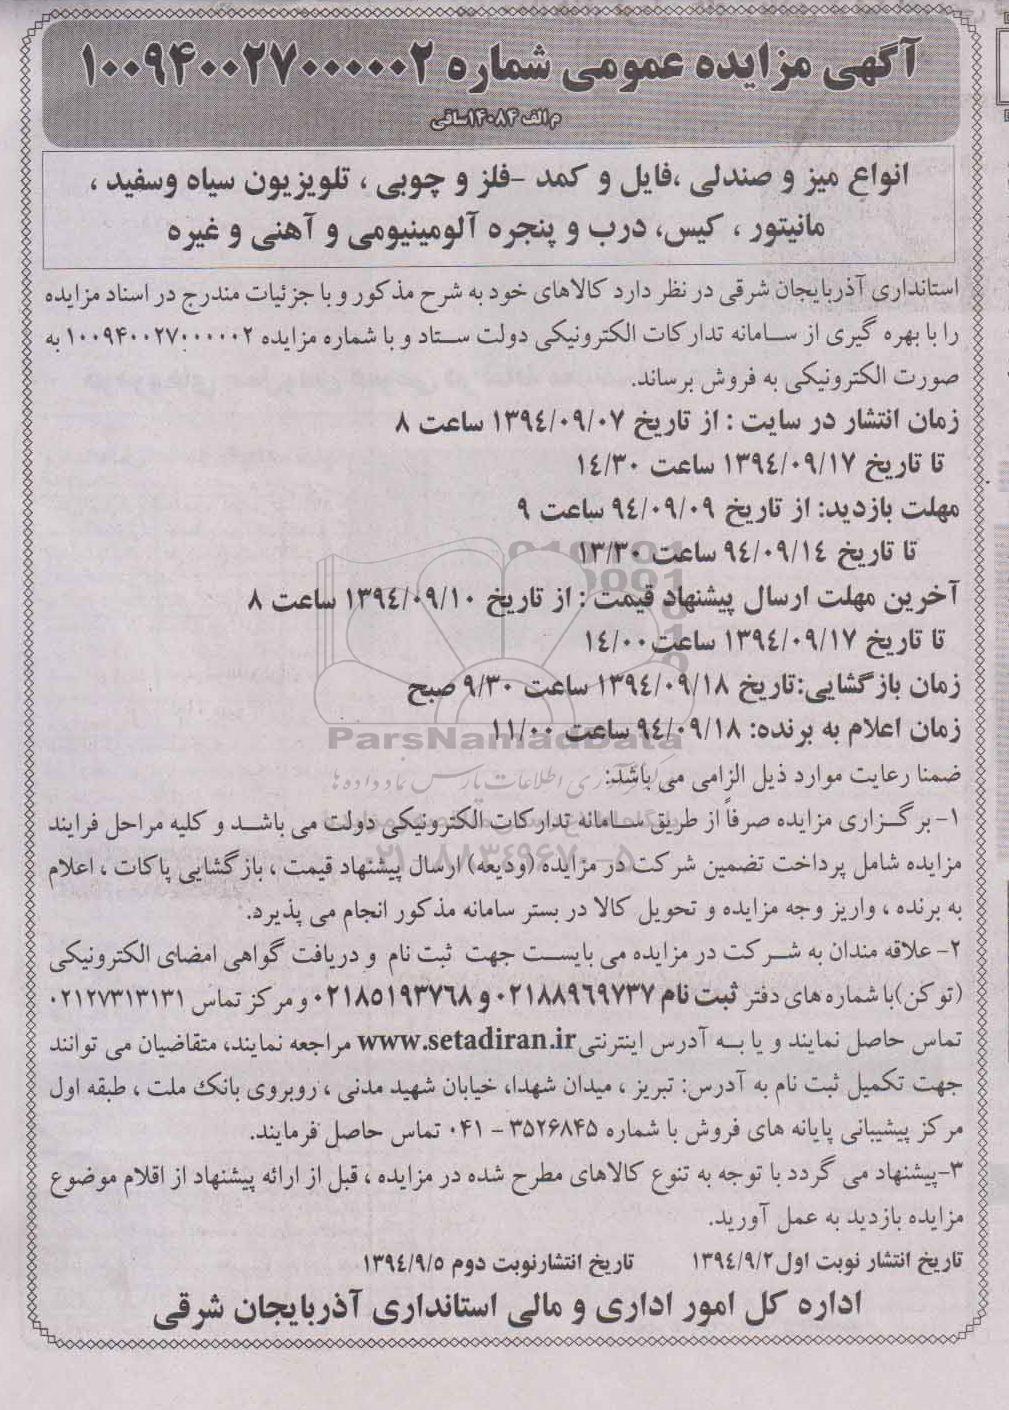 آگهی مزایده عمومی شماره ۱۰۰۹۴۰۰۲۷۰۰۰۰۰۲
م الف ۱۴۰۸۴ساقی
انواع میز و صندلی ،فایل و کمد -فلز و چوبی ، تلویزیون سیاه وسفید ،
مانیتور ، کیس، درب و پنجره آلومینیومی و آهنی و غیره
استانداری آذربایجان شرقی در نظر دارد کالاهای خود به شرح مذکور و با جزئیات مندرج در اسناد مزایده
را با بهره گیری از سـامانه تدارکات الکترونیکی دولت سـتاد و با شماره مزایده ۱۰۰۹۴۰۰۲۷۰۰۰۰۰۲ به
صورت الکترونیکی به فروش برساند.
زمان انتشار در سایت : از تاریخ ۱۳۹٤/۰۹/۰۷ ساعت ۸
تا تاریخ ۱۳۹٤/۰۹/۱۷ ساعت ۱٤/۳۰
مهلت بازدید: از تاریخ ۹٤/۰۹/۰۹ ساعت ۹
تا تاریخ ۹٤/۰۹/۱٤ ساعت ۱۳/۳۰
آخرین مهلت ارسال پیشنهاد قیمت : از تاریخ ۱۳۹٤/۰۹/۱۰ ساعت ۸
تا تاریخ ۱۳۹٤/۰۹/۱۷ ساعت ۱٤/۰۰
زمان بازگشایی:تاریخ ۱۳۹٤/۰۹/۱۸ ساعت ۹/۳۰ صبح
زمان اعلام به برنده: ۹٤/۰۹/۱۸ ساعت ۱۱/۰۰
ParsNamadData
ضمنا رعایت موارد ذیل الزامی می باشد:
۱- برگـزاری مزایده صرفاً از طریق سـامانه تدارکات الکترونیکی دولت می باشـد و کلیه مراحل فرایند
مزایده شامل پرداخت تضمین شرکت در مزایده (ودیعه) ارسال پیشنهاد قیمت ، بازگشایی پاکات ، اعلام
۰۲۱-۸۸۳۴۹۶۷۰-۵
به برنده ، واریز وجه مزایده و تحویل کالا در بستر سامانه مذکور انجام می پذیرد.
۲- علاقه مندان به شـرکت در مزایده می بایسـت جهت ثبت نام و دریافت گواهی امضای الکترونیکی
(توکن)با شماره های دفتر ثبت نام ۰۲۱۸۸۹۶۹۷۳۷ و ۰۲۱۸۵۱۹۳۷۶۸ و مرکز تماس ۰۲۱۲۷۳۱۳۱۳۱
تماس حاصل نمایند و یا بـه آدرس اینترنتی www.setadiran.ir مراجعه نمایند، متقاضیان می توانند
جهت تکمیل ثبت نام به آدرس: تبریز ، میدان شهدا، خیابان شهید مدنی ، روبروی بانک ملت ، طبقه اول
مرکز پیشیبانی پایانه های فروش با شماره ۳۵۲۶۸۴۵ - ۰۴۱ تماس حاصل فرمایند.
۳-پیشنهاد می گردد با توجه به تنوع کالاهای مطرح شده در مزایده ، قبل از ارائه پیشنهاد از اقلام موضوع
مزایده بازدید به عمل آورید.
تاریخ انتشار نوبت اول ۱۳۹٤/۹/۲ تاریخ انتشارنوبت دوم ۱۳۹٤/۹/۵
اداره کل امور اداری و مالی استانداری آذربایجان شرقی